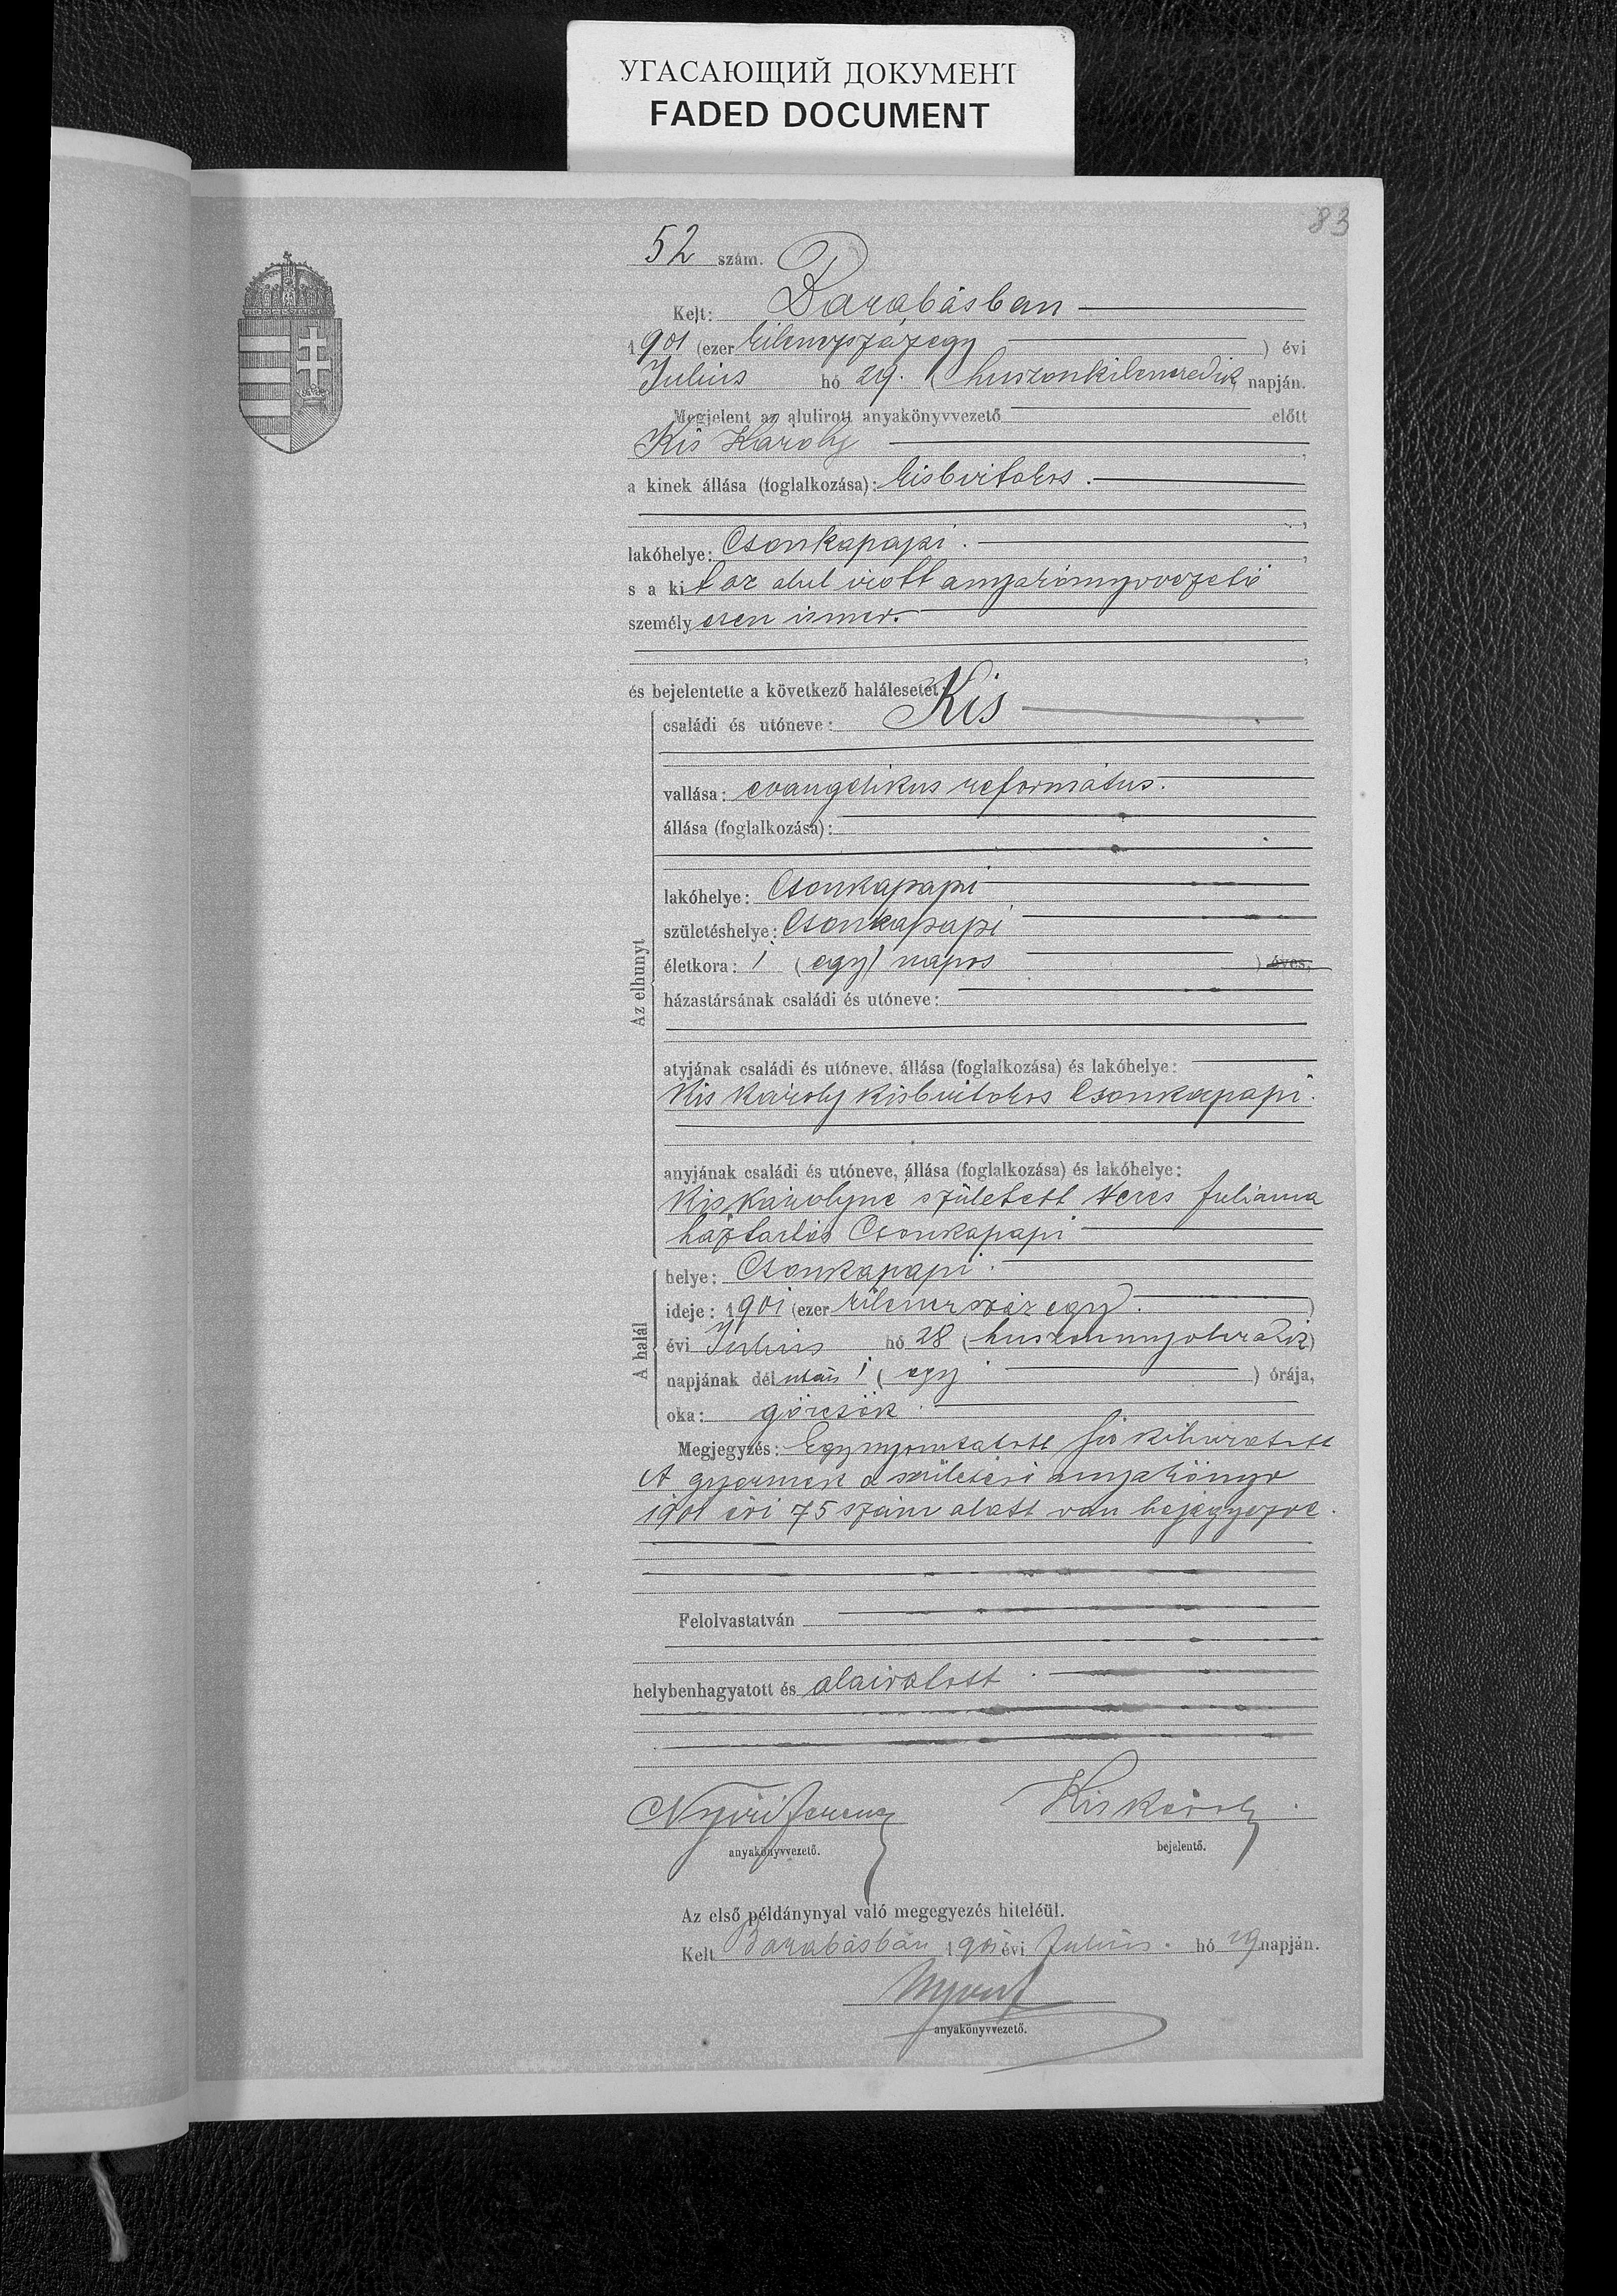 УГАСАЮЩИЙ ДОКУМЕНТ
FADED DOCUMENT
83
52 szám.
Kelt: Barabásban
1901 (ezer kilencszázegy ) évi
Julius hó 29. (huszonkilencedik) napján.
Megjelent az alulirott anyakönyvvezető előtt
Kis Károly ,
a kinek állása (foglalkozása): kisbirtokos .
,
lakóhelye: Csonkapapi . ,
s a kit az alul irott anyakönyvvezető
személyesen ismer.
,
és bejelentette a következő halálesetet:
családi és utóneve: Kis
vallása: evangelikus református.
állása (foglalkozása):
lakóhelye: Csonkapapi
születéshelye: Csonkapapi
életkora: 1 (egy) napos ) éves,
házastársának családi és utóneve:
Az elhunyt
atyjának családi és utóneve, állása (foglalkozása) és lakóhelye:
Kis Károly kisbirtokos Csonkapapi.
anyjának családi és utóneve, állása (foglalkozása) és lakóhelye:
Kis Károlyné született Veres Julianna
háztartás Csonkapapi
helye: Csonkapapi .
ideje: 1901 (ezer kilencszáz egy . )
évi Julius hó 28 (huszonnyolcadik)
napjának délután 1 ( egy ) órája,
oka: görcsök .
A halál
Megjegyzés: Egy nyomtatott
A gyermek a születési anyakönyv
1901 évi 75 szám alatt van bejegyezve.
Felolvastatván
helybenhagyatott és aláiratott .
Nyiri Ferenc Kis Károly .
anyakönyvvezető. bejelentő.
Az első példánynyal való megegyezés hiteléül.
Kelt Barabásban 1901 évi Julius . hó 29 napján.
anyakönyvvezető.